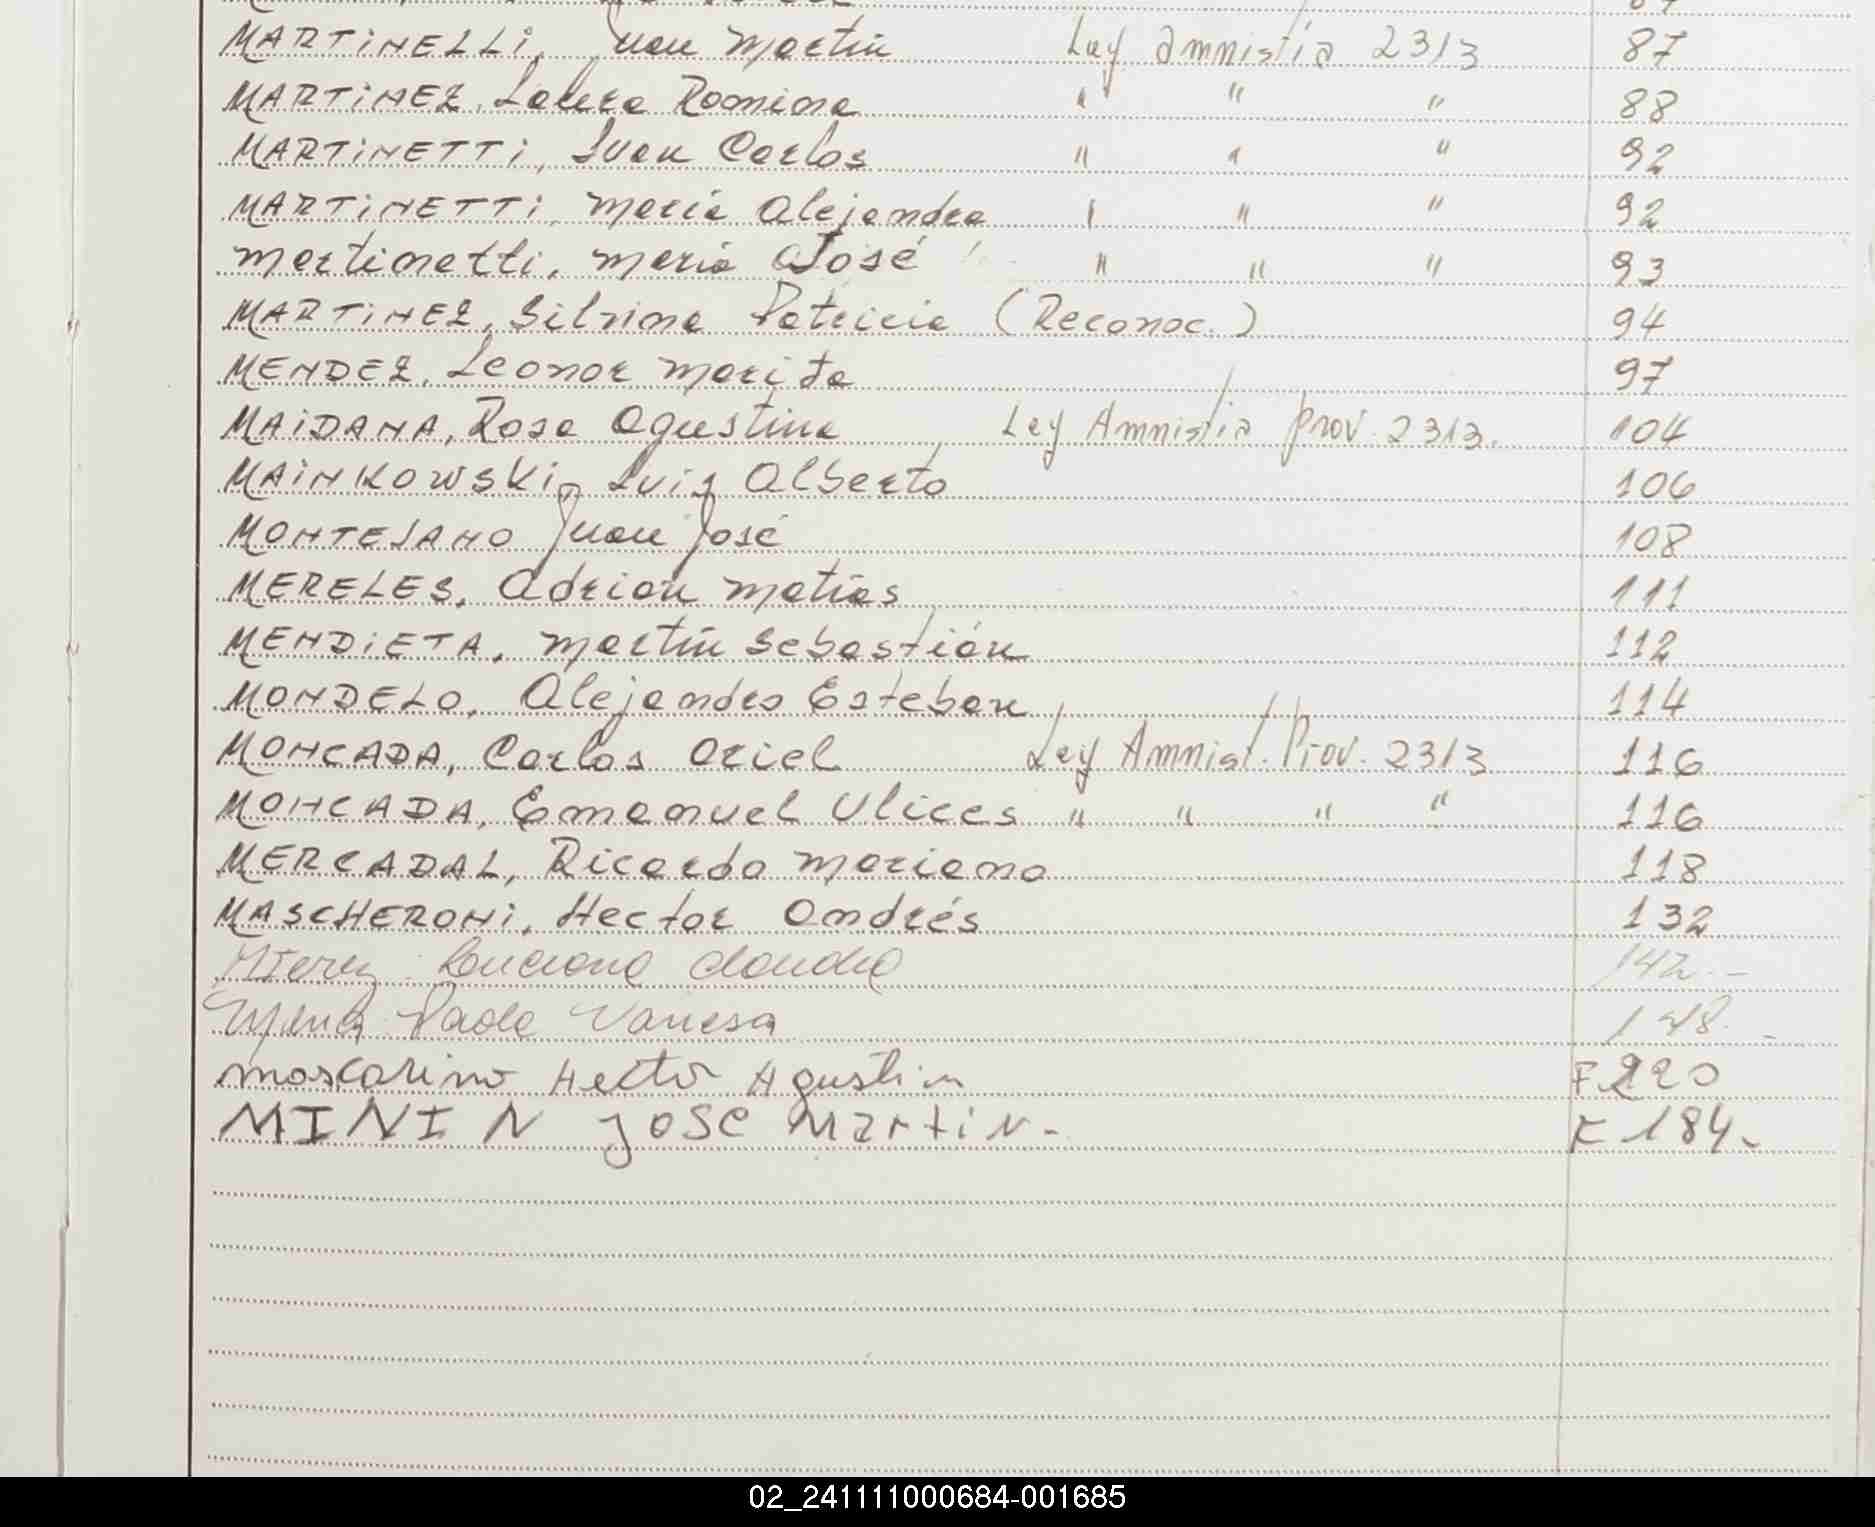 MARTINELLI, Juan Martín Ley amnistía 2313 87
MARTINEZ, Laura Romina " " " 88
MARTINETTI, Juan Carlos " " " 92
MARTINETTI, María Alejandra " " " 92
Martinetti, María José " " " 93
MARTINEZ, Silvina Patricia (Reconoc.) 94
MENDEZ, Leonor Marita 97
MAIDANA, Rosa Agustina Ley Amnistía prov. 2313. 104
MAINKOWSKI, Luis Alberto 106
MONTEJANO Juan José 108
MERELES, Adrian Matías 111
MENDIETA, Martín Sebastián 112
MONDELO, Alejandro Esteban 114
MONCADA, Carlos Oriel Ley Amnist. Prov. 2313 116
MONCADA, Emanuel Ulices " " " " 116
MERCADAL, Ricardo Mariano 118
MASCHERONI, Hector Andrés 132
Luciano Claudio 142.-
Paola Vanesa 148.-
Moscarino Hector Agustin F 220
MININ José Martin.- F 184.-
02_241111000684-001685